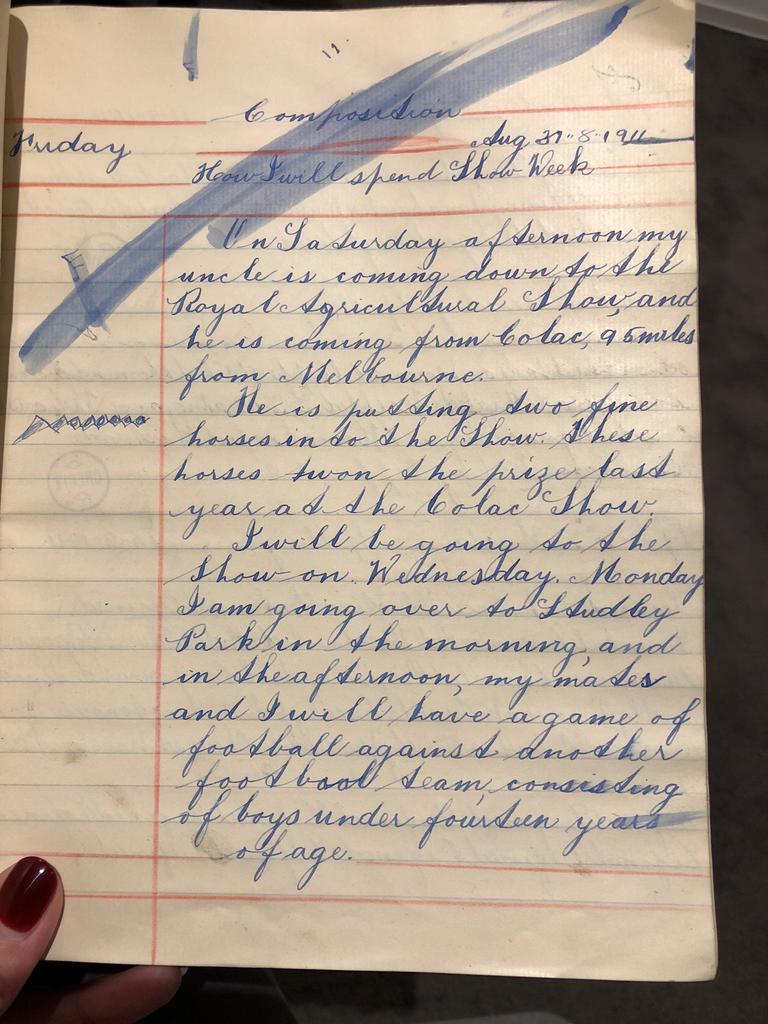 11.
Composition
Friday
Aug 31-8-1911
How I will spend Show Week
On Saturday afternoon my
uncle is coming down to the
Royal Agricultural Show, and
he is coming from Colac, 95 miles
from Melbourne.
He is putting two fine
horses into the Show. These
horses won the prize last
year at the Colac Show.
I will be going to the
Show on Wednesday. Monday
I am going over to Studley
Park in the morning, and
in the afternoon, my mates
and I will have a game of
football against another
football team, consisting
of boys under fourteen years
of age.